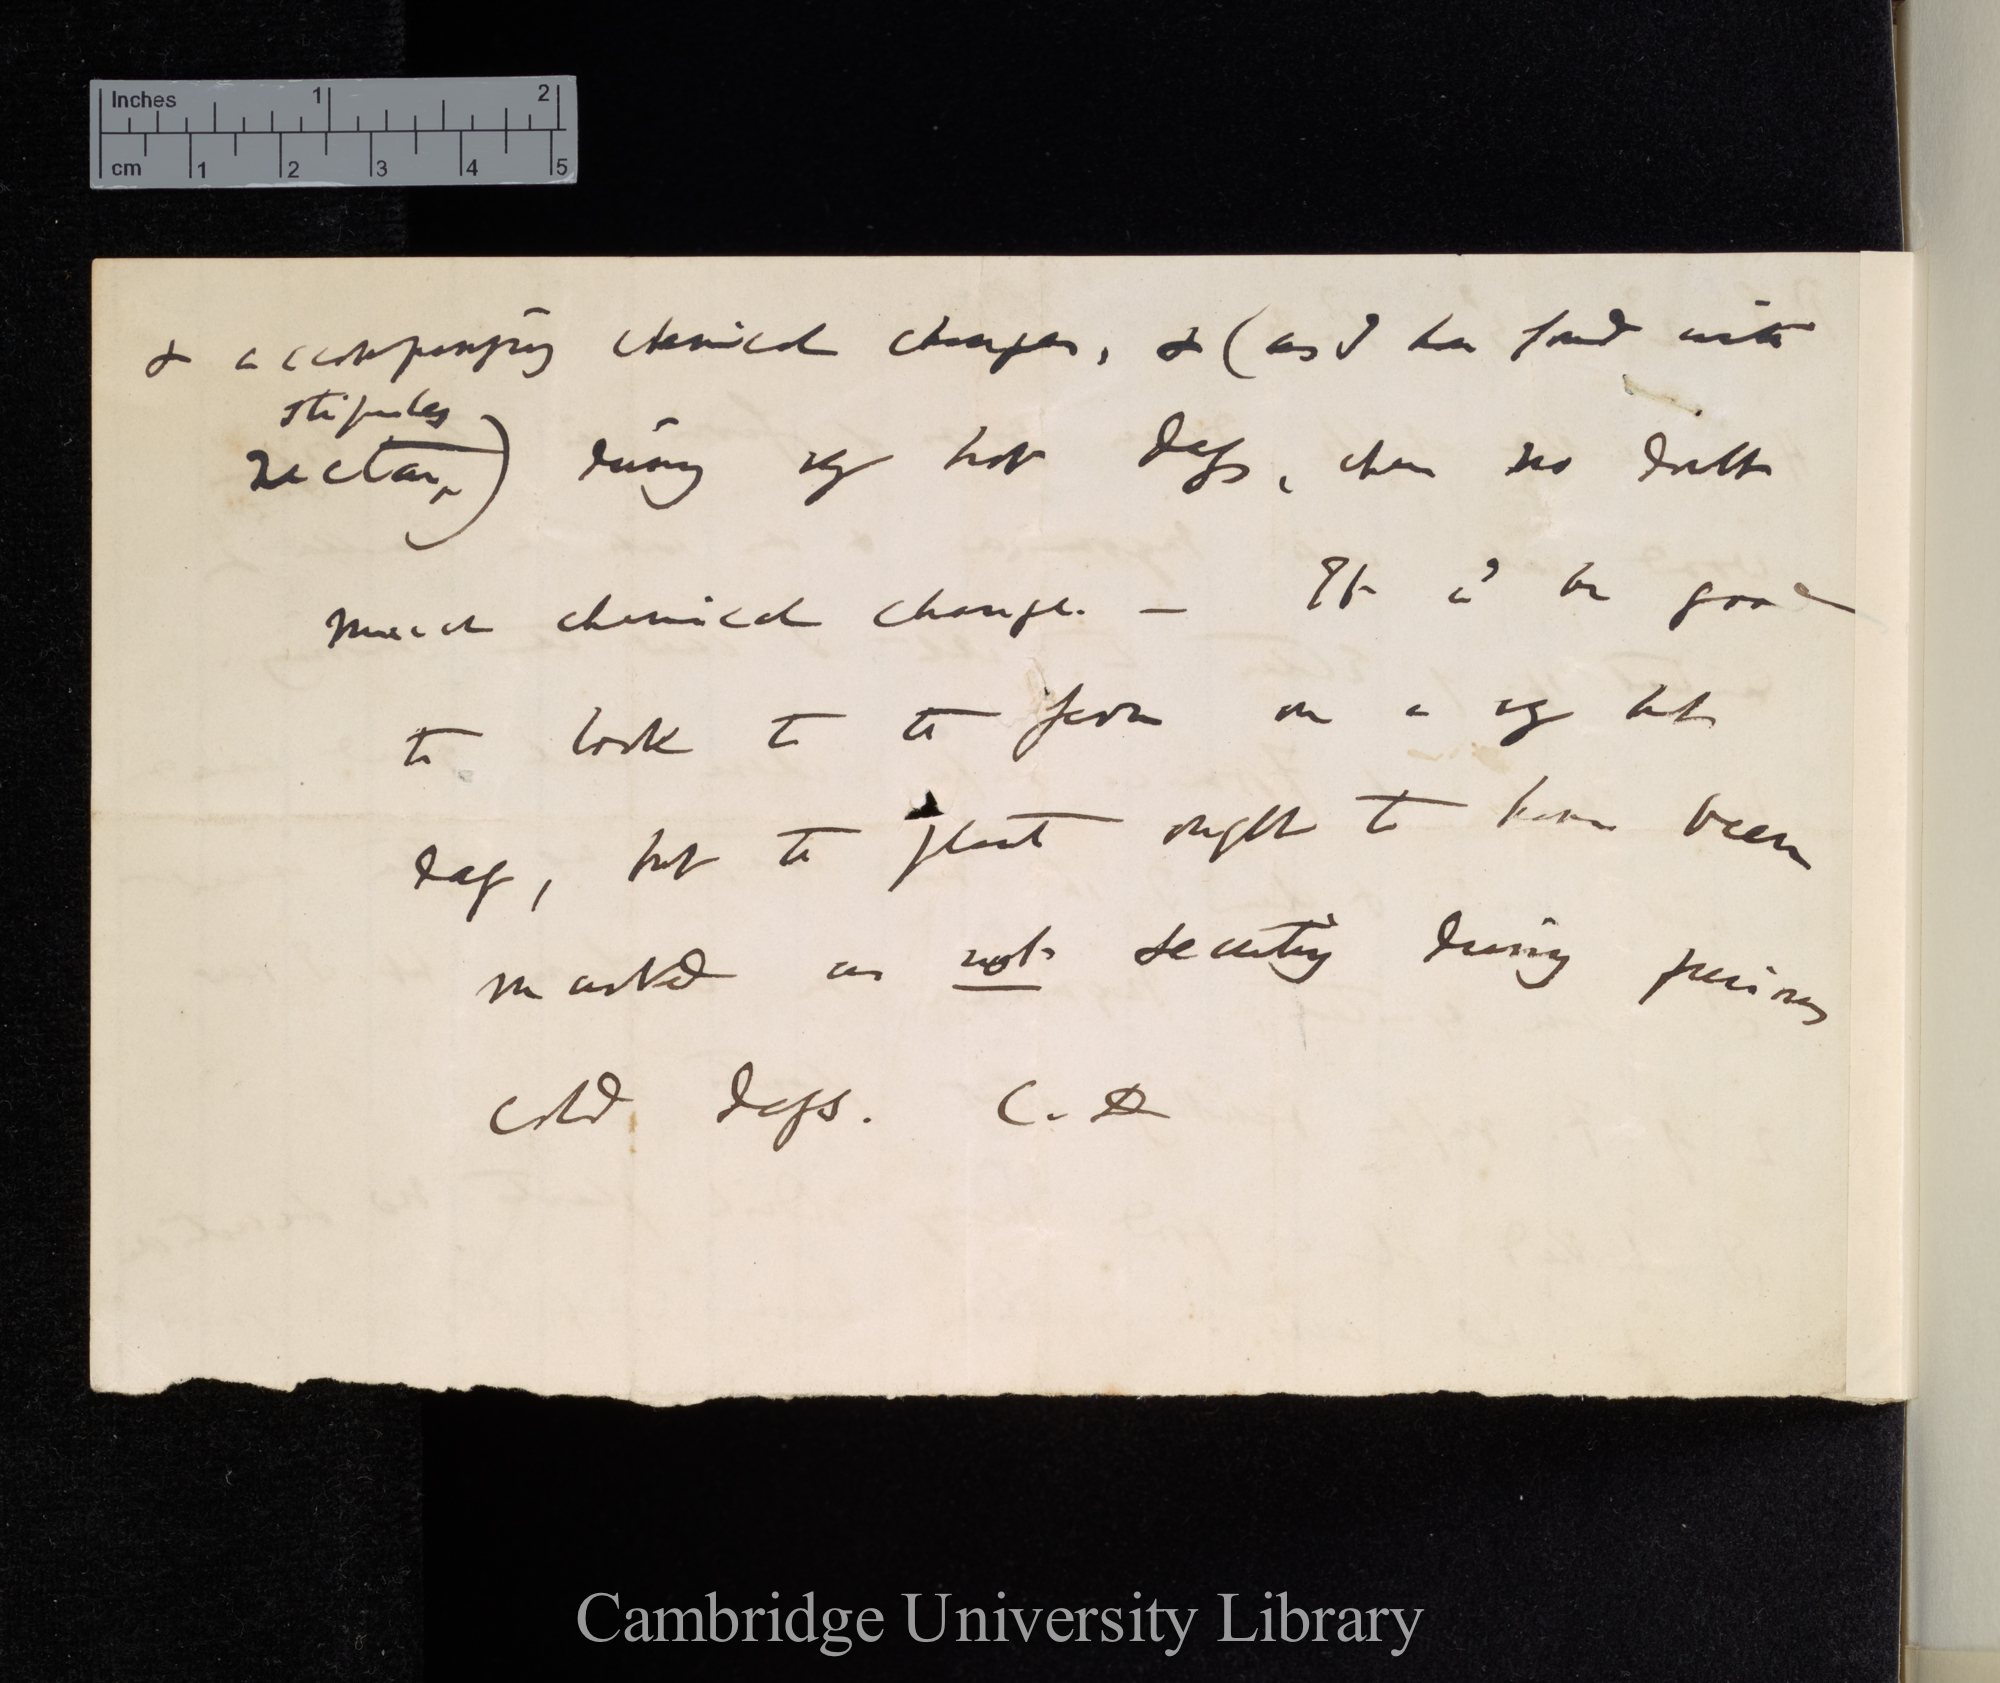 Inches 1 2
cm 1 2 3 4 5
& accompanying chemical changes, & (as I have found with
stipules
nectar) during very hot days, when no doubt
much chemical change. — It wd be good
to look to the fern on a very hot
day, but the plant ought to have been
marked as not secreting during previous
cold days. C. D
Cambridge University Library